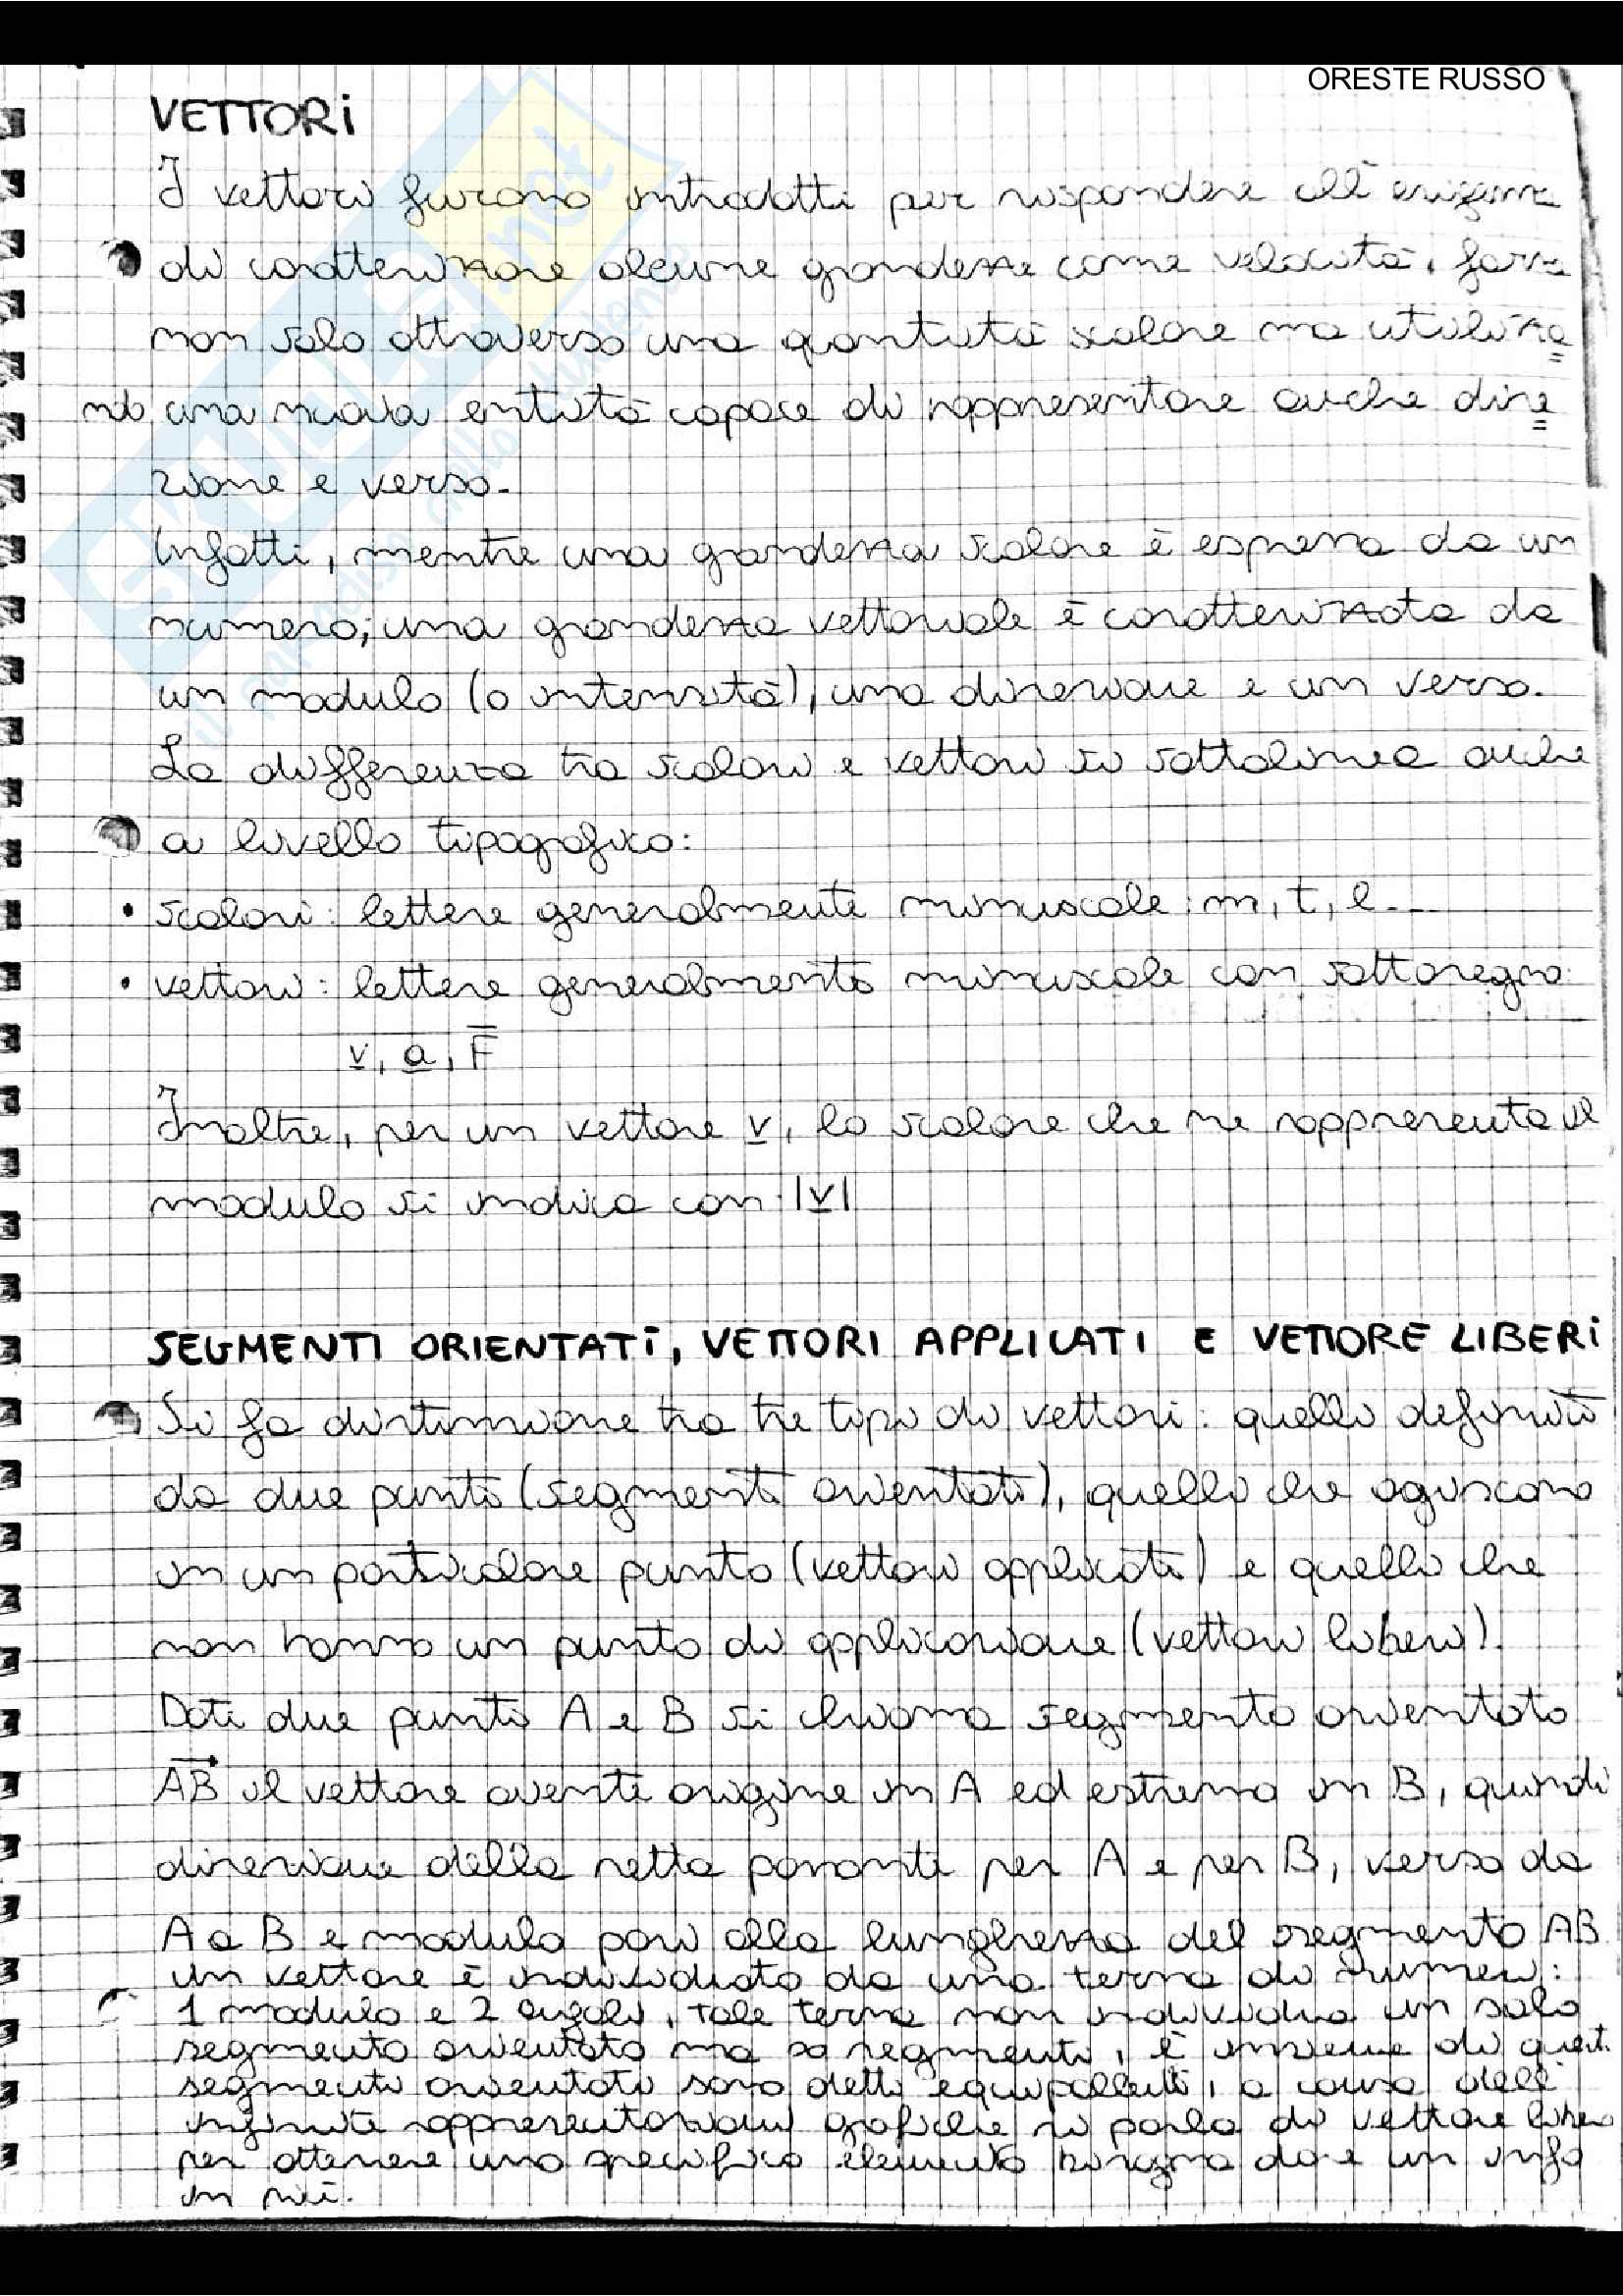 ORESTE RUSSO
VETTORI
I vettori furono introdotti per rispondere all'esigenza
di caratterizzare alcune grandezze come velocità, forza
non solo attraverso una quantità scalare ma utilizza
ndo una nuova entità capace di rappresentare anche dire
zione e verso.
Infatti, mentre una grandezza scalare è espressa da un
numero, una grandezza vettoriale è caratterizzata da
un modulo (o intensità), una direzione e un verso.
La differenza tra scalari e vettori si sottolinea anche
a livello tipografico:
• scalari: lettere generalmente minuscole: m, t, l...
• vettori: lettere generalmente minuscole con sottosegno:
v, a, F
Inoltre, per un vettore v, lo scalare che ne rappresenta il
modulo si indica con |v|
SEGMENTI ORIENTATI, VETTORI APPLICATI E VETTORE LIBERI
Si fa distinzione tra tre tipi di vettori: quelli definiti
da due punti (segmenti orientati), quelli che agiscono
in un particolare punto (vettori applicati) e quelli che
non hanno un punto di applicazione (vettori liberi).
Dati due punti A e B si chiama segmento orientato
AB il vettore avente origine in A ed estremo in B, quindi
direzione della retta passante per A e per B, verso da
A a B e modulo pari alla lunghezza del segmento AB
un vettore è individuato da una terna di numeri:
1 modulo e 2 angoli, tale terna non individua un solo
segmento orientato ma ∞ segmenti, è insieme di questi
segmenti orientati sono detti equipollenti, a causa delle
infinite rappresentazioni grafiche si parla di vettore libero
per ottenere uno specifico elemento bisogna dare un info
in più.
SKUOLA.net
il paradiso dello studente